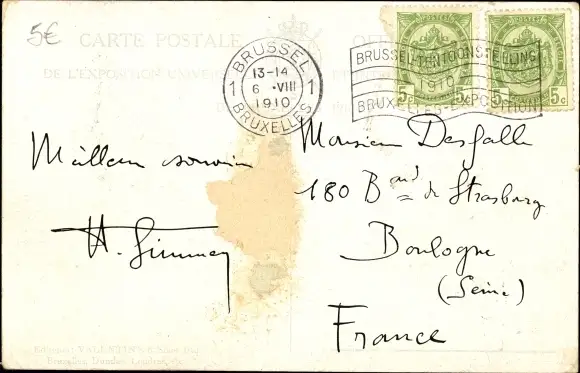 5€
CARTE POSTALE
DE L'EXPOSITION UNIVERSELLE
BRUSSEL
1 13-14 1
6 ·VIII
1910
BRUXELLES
BRUSSEL-TENTOONSTELLING
1910
BRUXELLES-EXPOSITION
5c 5c 5c
Meilleur souvenir
Monsieur Desfalle
180 Bard de Strasbourg
Boulogne
(Seine)
France
VALENTINE
Bruxelles, Dundee, Londres,